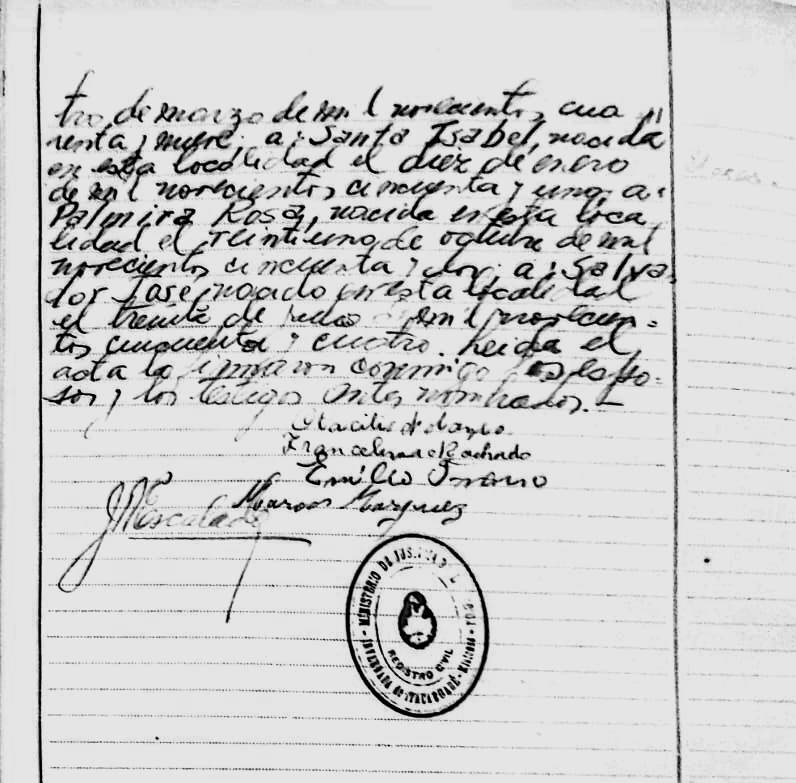 tro de marzo de mil novecientos cua
renta y nueve; a: Santa Isabel, nacida
en esta localidad el diez de enero
de mil novecientos cincuenta y uno; a:
Palmira Rosa, nacida en esta loca
lidad el veintiuno de octubre de mil
novecientos cincuenta y dos; a: Salva-
dor José, nacido en esta localidad
el treinta de de mil novecien-
tos cincuenta y cuatro. Leída el
acta la firmaron conmigo los espo-
sos y los testigos antes nombrados.—
Francelina Machado
Emilio
Marcos Marquez
Escalada
MINISTERIO DE JUSTICIA
REGISTRO CIVIL
ITACARUARÉ - MISIONES